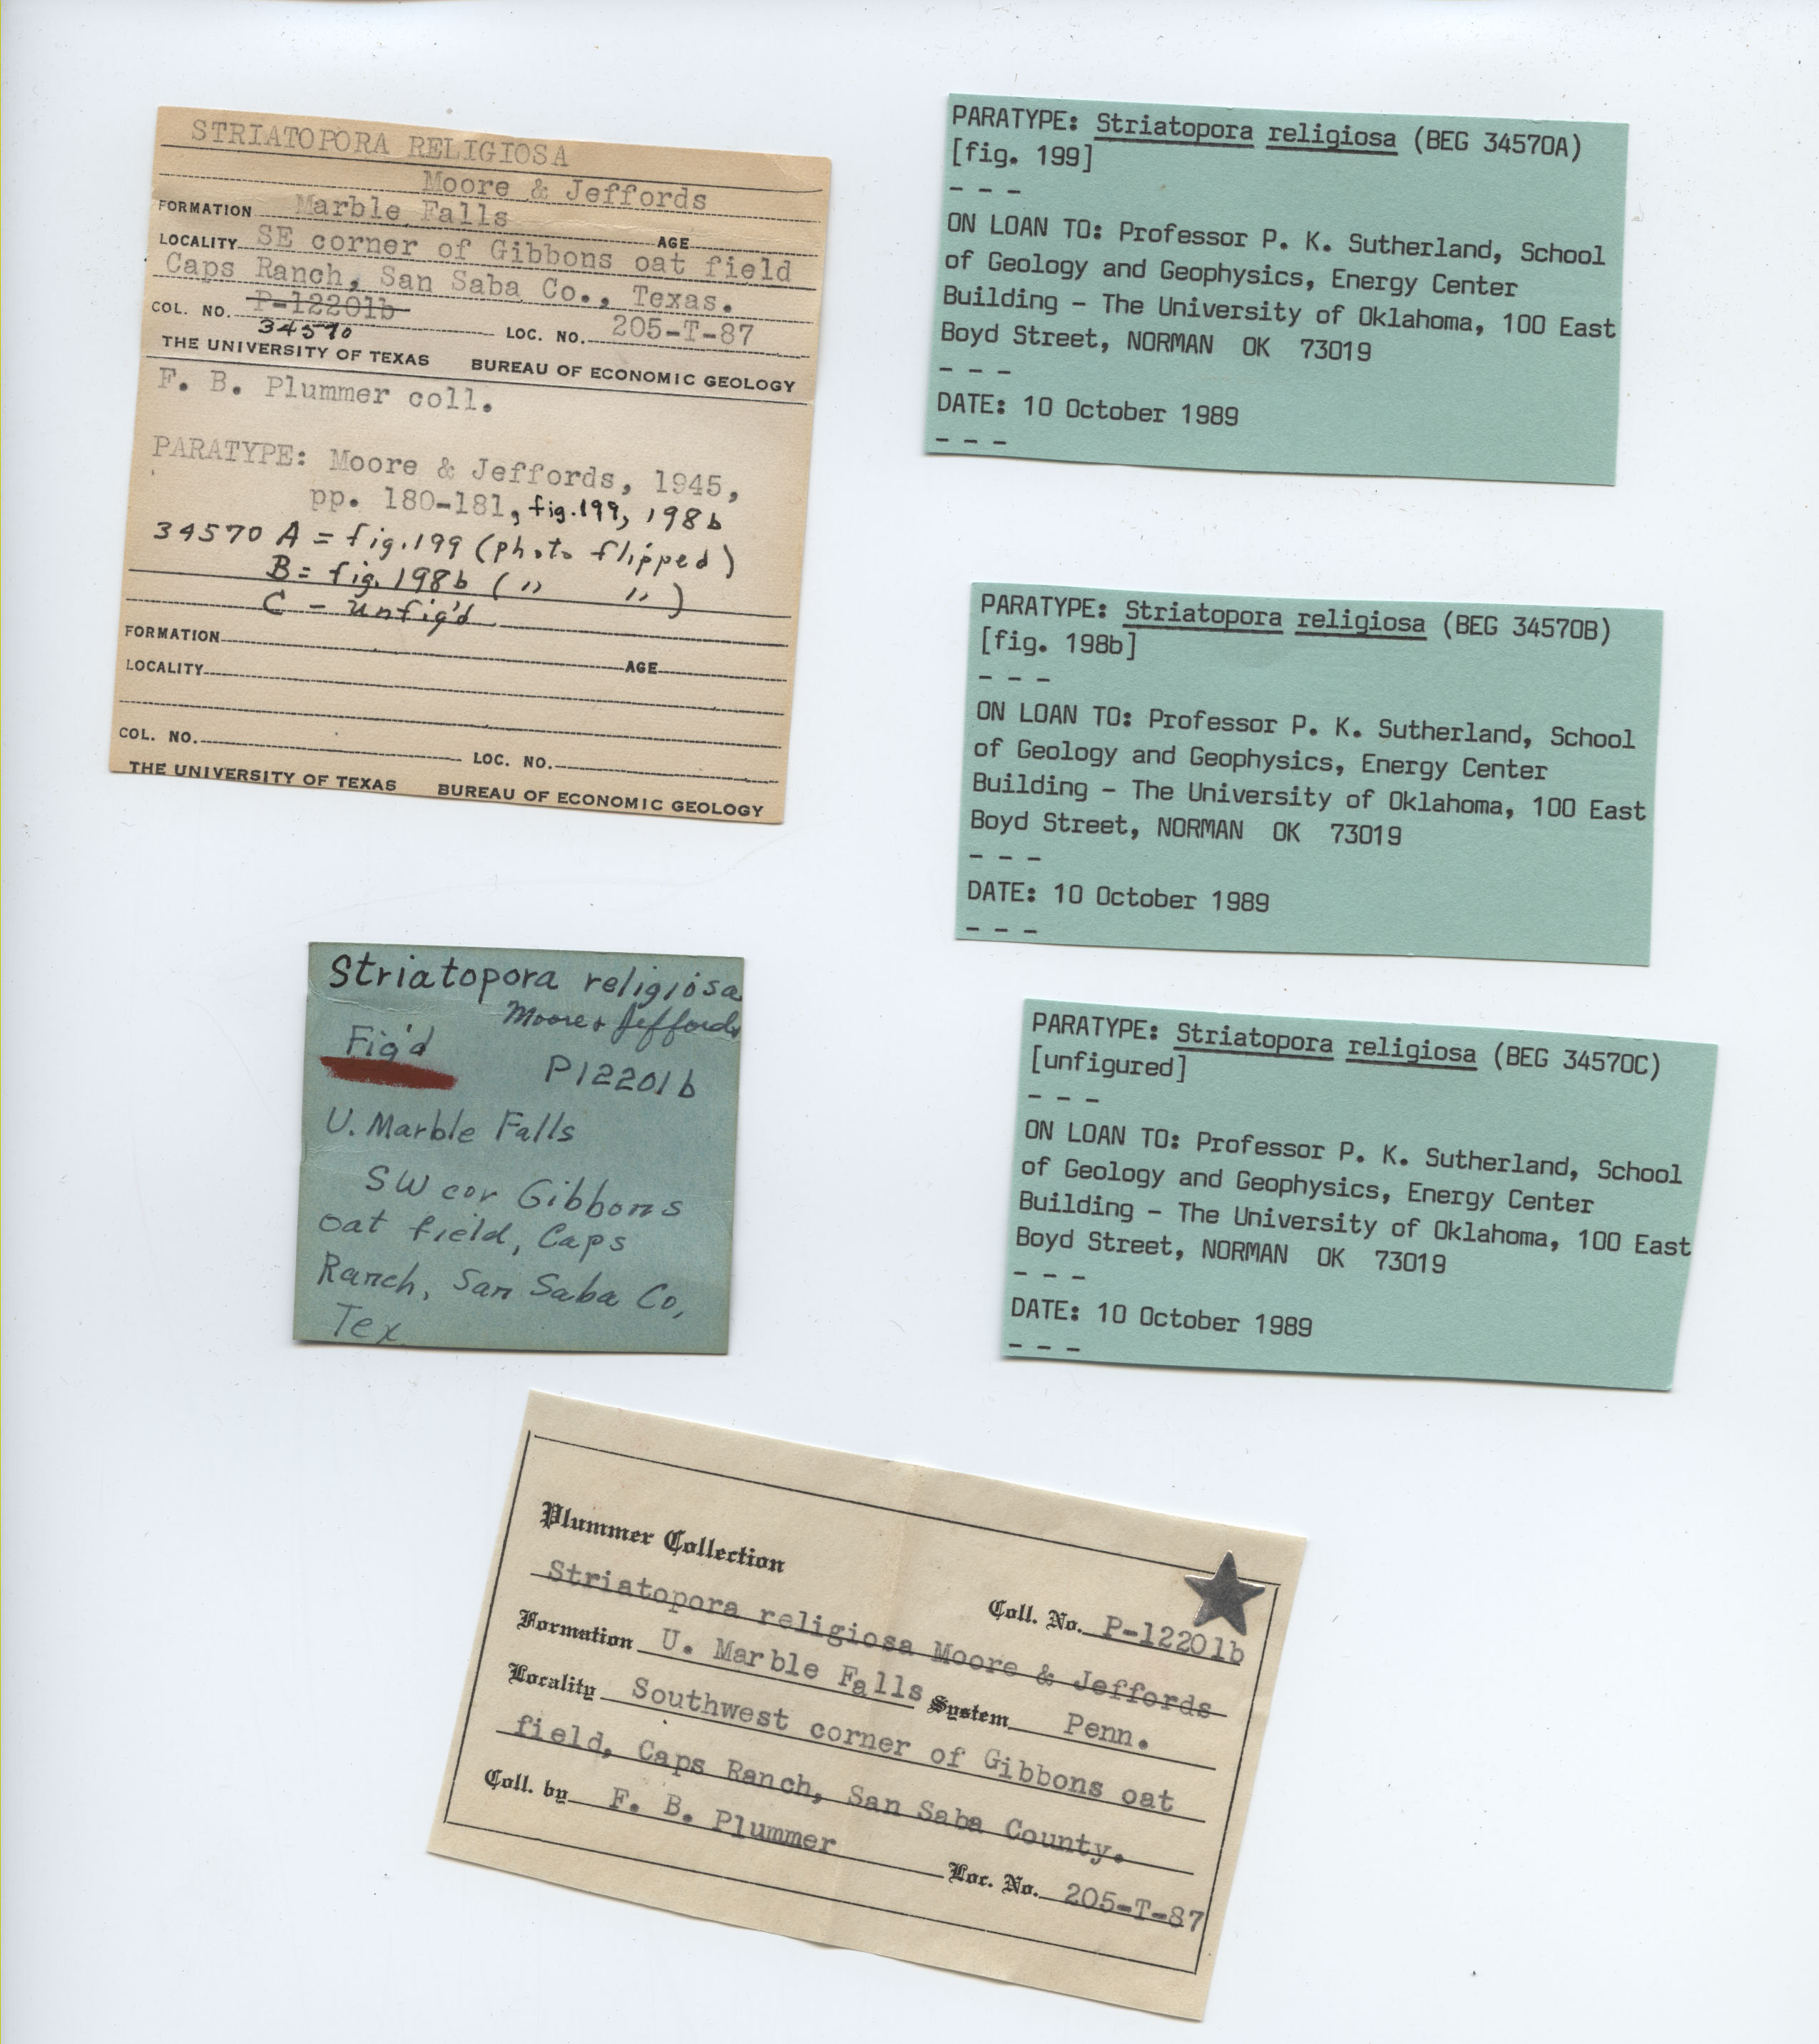 STRIATOPORA RELIGIOSA
Moore & Jeffords
FORMATION Marble Falls
AGE
LOCALITY SE corner of Gibbons oat field
Caps Ranch, San Saba Co., Texas.
COL. NO. P-12201b LOC. NO. 205-T-87
34570
THE UNIVERSITY OF TEXAS BUREAU OF ECONOMIC GEOLOGY
F. B. Plummer coll.
PARATYPE: Moore & Jeffords, 1945,
pp. 180-181, fig.199, 198b
34570 A = fig.199 (photo flipped)
B = fig. 198b ( " " )
C - unfig'd
FORMATION
LOCALITY AGE
COL. NO. LOC. NO.
THE UNIVERSITY OF TEXAS BUREAU OF ECONOMIC GEOLOGY
PARATYPE: Striatopora religiosa (BEG 34570A)
[fig. 199]
- - -
ON LOAN TO: Professor P. K. Sutherland, School
of Geology and Geophysics, Energy Center
Building - The University of Oklahoma, 100 East
Boyd Street, NORMAN OK 73019
- - -
DATE: 10 October 1989
- - -
PARATYPE: Striatopora religiosa (BEG 34570B)
[fig. 198b]
- - -
ON LOAN TO: Professor P. K. Sutherland, School
of Geology and Geophysics, Energy Center
Building - The University of Oklahoma, 100 East
Boyd Street, NORMAN OK 73019
- - -
DATE: 10 October 1989
- - -
Striatopora religiosa
Moore & Jeffords
Fig'd
P12201b
U. Marble Falls
SW cor Gibbons
oat field, Caps
Ranch, San Saba Co,
Tex
PARATYPE: Striatopora religiosa (BEG 34570C)
[unfigured]
- - -
ON LOAN TO: Professor P. K. Sutherland, School
of Geology and Geophysics, Energy Center
Building - The University of Oklahoma, 100 East
Boyd Street, NORMAN OK 73019
- - -
DATE: 10 October 1989
- - -
Plummer Collection
Coll. No. P-12201b
Striatopora religiosa Moore & Jeffords
Formation U. Marble Falls System Penn.
Locality Southwest corner of Gibbons oat
field, Caps Ranch, San Saba County.
Coll. by F. B. Plummer
Loc. No. 205-T-87